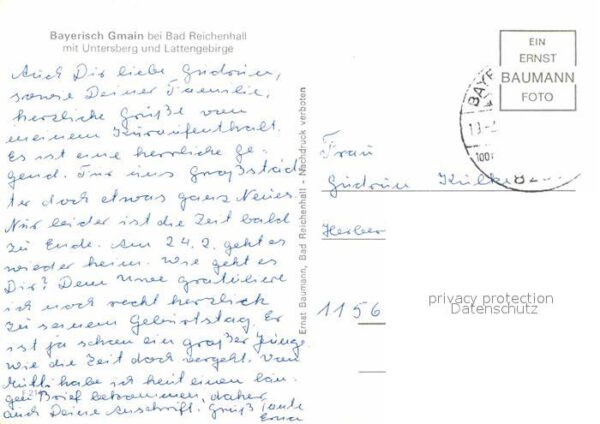 Bayerisch Gmain bei Bad Reichenhall
mit Untersberg und Lattengebirge
Auch Dir liebe Gudrun,
sowie Deiner Familie,
herzliche Grüße von
meinem Kuraufenthalt.
Es ist eine herrliche Ge-
gend. Für uns Großstäd-
ter doch etwas ganz Neues.
Nur leider ist die Zeit bald
zu Ende. Am 24.2. geht es
wieder heim. Wie geht es
Dir? Dem Uwe gratuliere
ich noch recht herzlich
zu seinem Geburtstag. Er
ist ja schon ein großer Junge.
Wie die Zeit doch vergeht. Von
Mutti habe ich heut einen lan-
gen Brief bekommen, daher
auch Deine Anschrift. Gruß Tante
Erna
Ernst Baumann, Bad Reichenhall - Nachdruck verboten
EIN
ERNST
BAUMANN
FOTO
BAYE
Frau
Gudrun
Herber
1156
privacy protection
Datenschutz